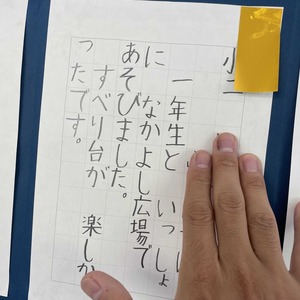 小二
一年生と いっしょ
に なかよし広場で
あそびました。
すべり台が 楽しか
ったです。